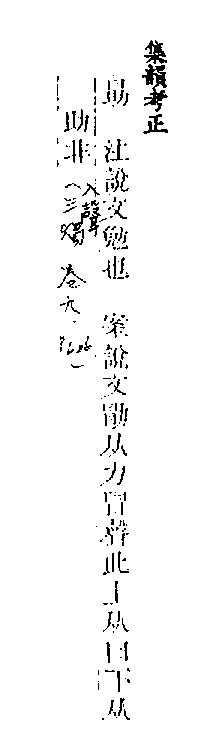 集韻考正
勗 注說文勉也 案說文勖从力冒聲此上从日下从
助非
入聲
三燭 卷九